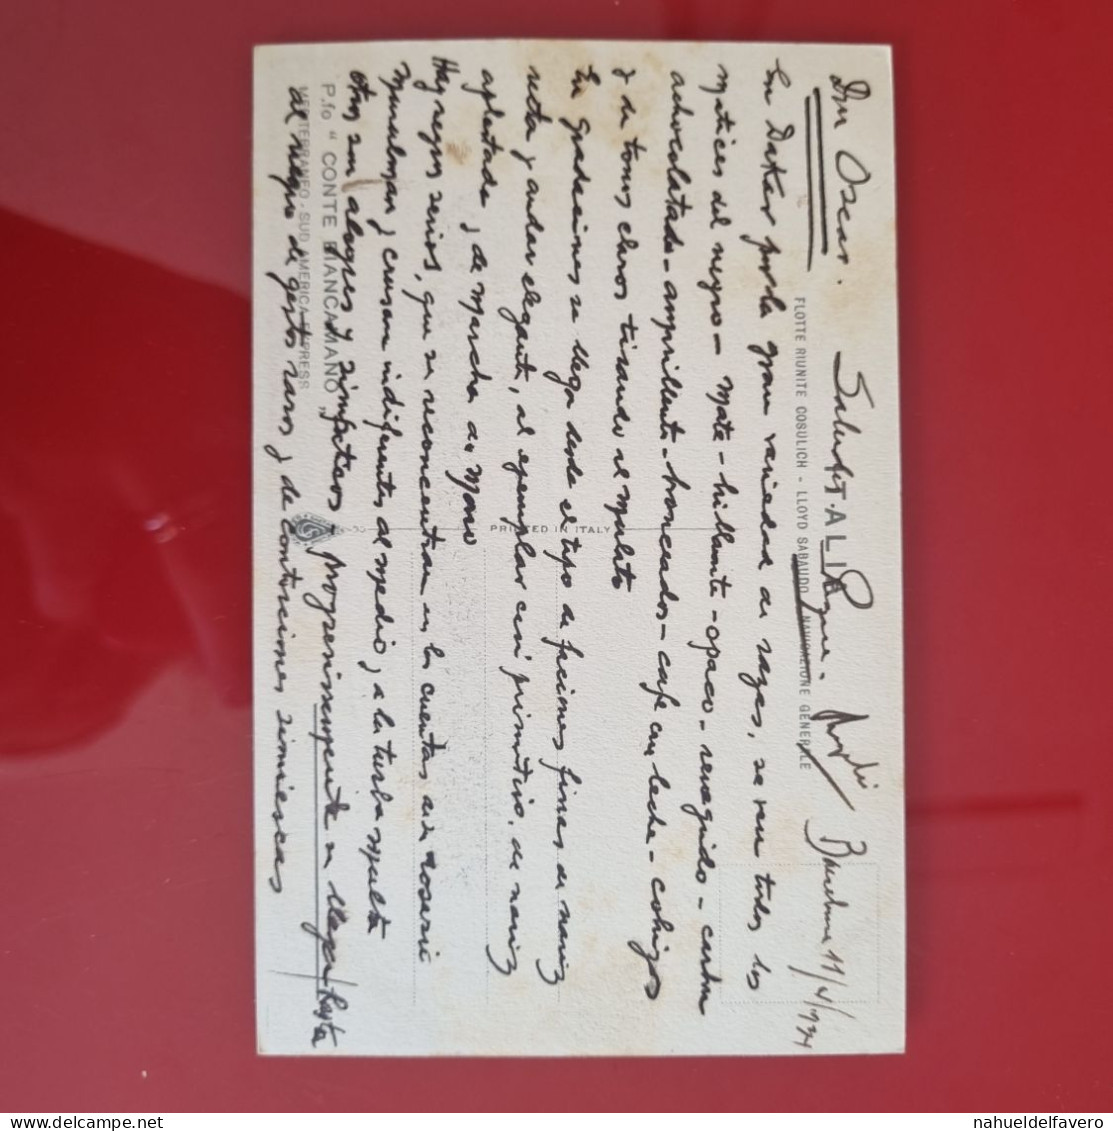 Don Oscar.
Barcelona 11/4/934
En Dakar gran variedad de razas, se ven todos los
matices del negro - mate - brillante - opaco - renegrido -
achocolatado - amarillento - bronceados - café con leche - cobrizos
y de tonos claros tirando al mulato
En gradaciones se llega desde el tipo de facciones finas de nariz
recta y andar elegante, al ejemplar casi primitivo, de nariz
aplastada, y de marcha de mono
Hay negros serios, que se reconcentran en las cuentas del rosario
musulman y cruzan indiferentes al medio, a la turba multa
otros son alegres y simpáticos, progresivamente se llega hasta
al negro de gestos raros y de contorsiones simiescas
FLOTTE RIUNITE COSULICH - LLOYD SABAUDO / NAVIGAZIONE GENERALE
"ITALIA"
PRINTED IN ITALY
P.fo " CONTE BIANCAMANO "
MEDITERRANEO - SUD AMERICA EXPRESS
nahueldelfavero
www.delcampe.net